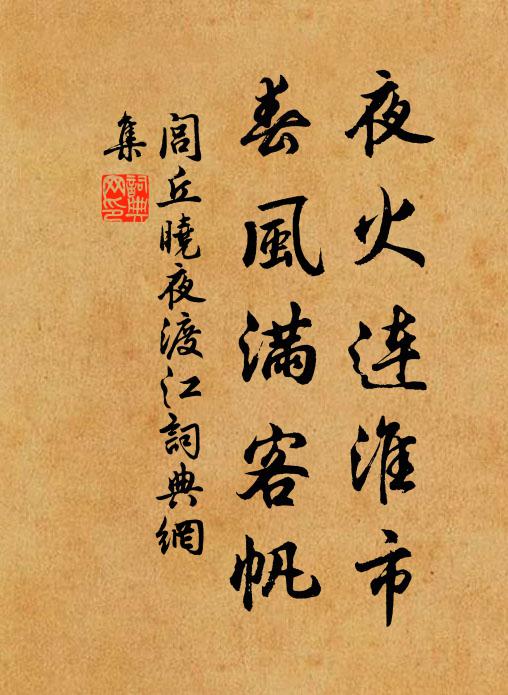 夜火连淮市
春風满客帆
閭丘曉夜渡江詞典網
集
詞典網印